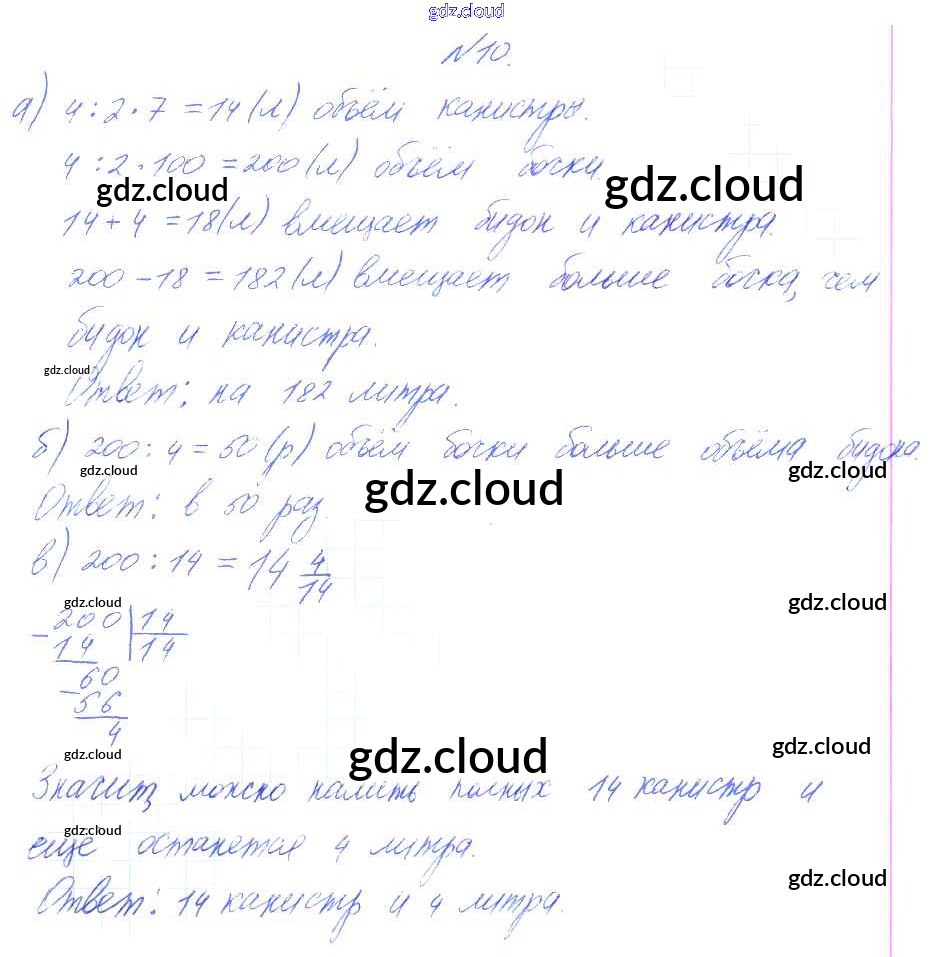 gdz.cloud
№10.
а) 4 : 2 · 7 = 14 (л) объём канистры.
4 : 2 · 100 = 200 (л) объём бочки.
gdz.cloud gdz.cloud
14 + 4 = 18 (л) вмещает бидон и канистра.
200 - 18 = 182 (л) вмещает больше бочка, чем
бидон и канистра.
gdz.cloud
Ответ: на 182 литра.
б) 200 : 4 = 50 (р) объём бочки больше объёма бидона.
gdz.cloud gdz.cloud gdz.cloud
Ответ: в 50 раз.
в) 200 : 14 = 14 4/14
gdz.cloud gdz.cloud
- 200 | 14
14 | 14
- 60
56
4
gdz.cloud gdz.cloud gdz.cloud
Значит, можно налить полных 14 канистр и
gdz.cloud
ещё останется 4 литра.
gdz.cloud
Ответ: 14 канистр и 4 литра.